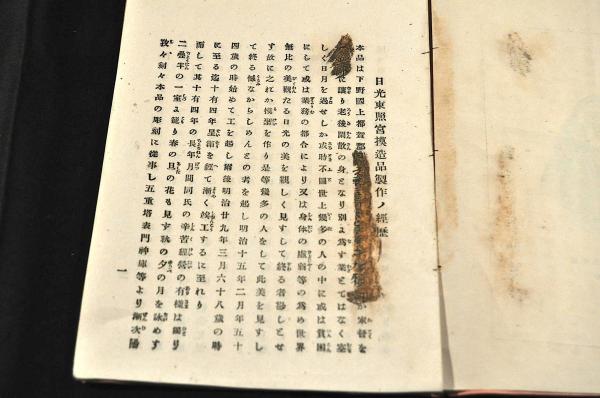 日光東照宮摸造品製作ノ經歷
本品は下野國上都賀郡 か家督を
に讓り老後閑散の身となり別よ爲す業とてはなく空
しく日月を過せしか或時不圖世上幾多の人の中に或は貧困
にして或は業務の都合により又は身体の虛弱等の爲め世界
無比の美觀たる日光の美を親しく見すして終る者尠しとせ
す故に之れか摸型を作り是等幾多の人をして此美を見すし
て終る憾なからしめんとの考を起し明治十五年二月年五十
四歲の時始めて工を起し爾後明治廿九年三月六十八歲の時
に至る迄十有四年星霜を經て漸く竣工するに至れり
而して其十有四年の長年月間同氏の辛苦經營の有樣は獨り
二疊半の一室よ籠り春の旦の花も見す秋の夕の月を詠めす
孜々刻々本品の彫刻に從事し五重塔表門神庫等より漸次陽
一